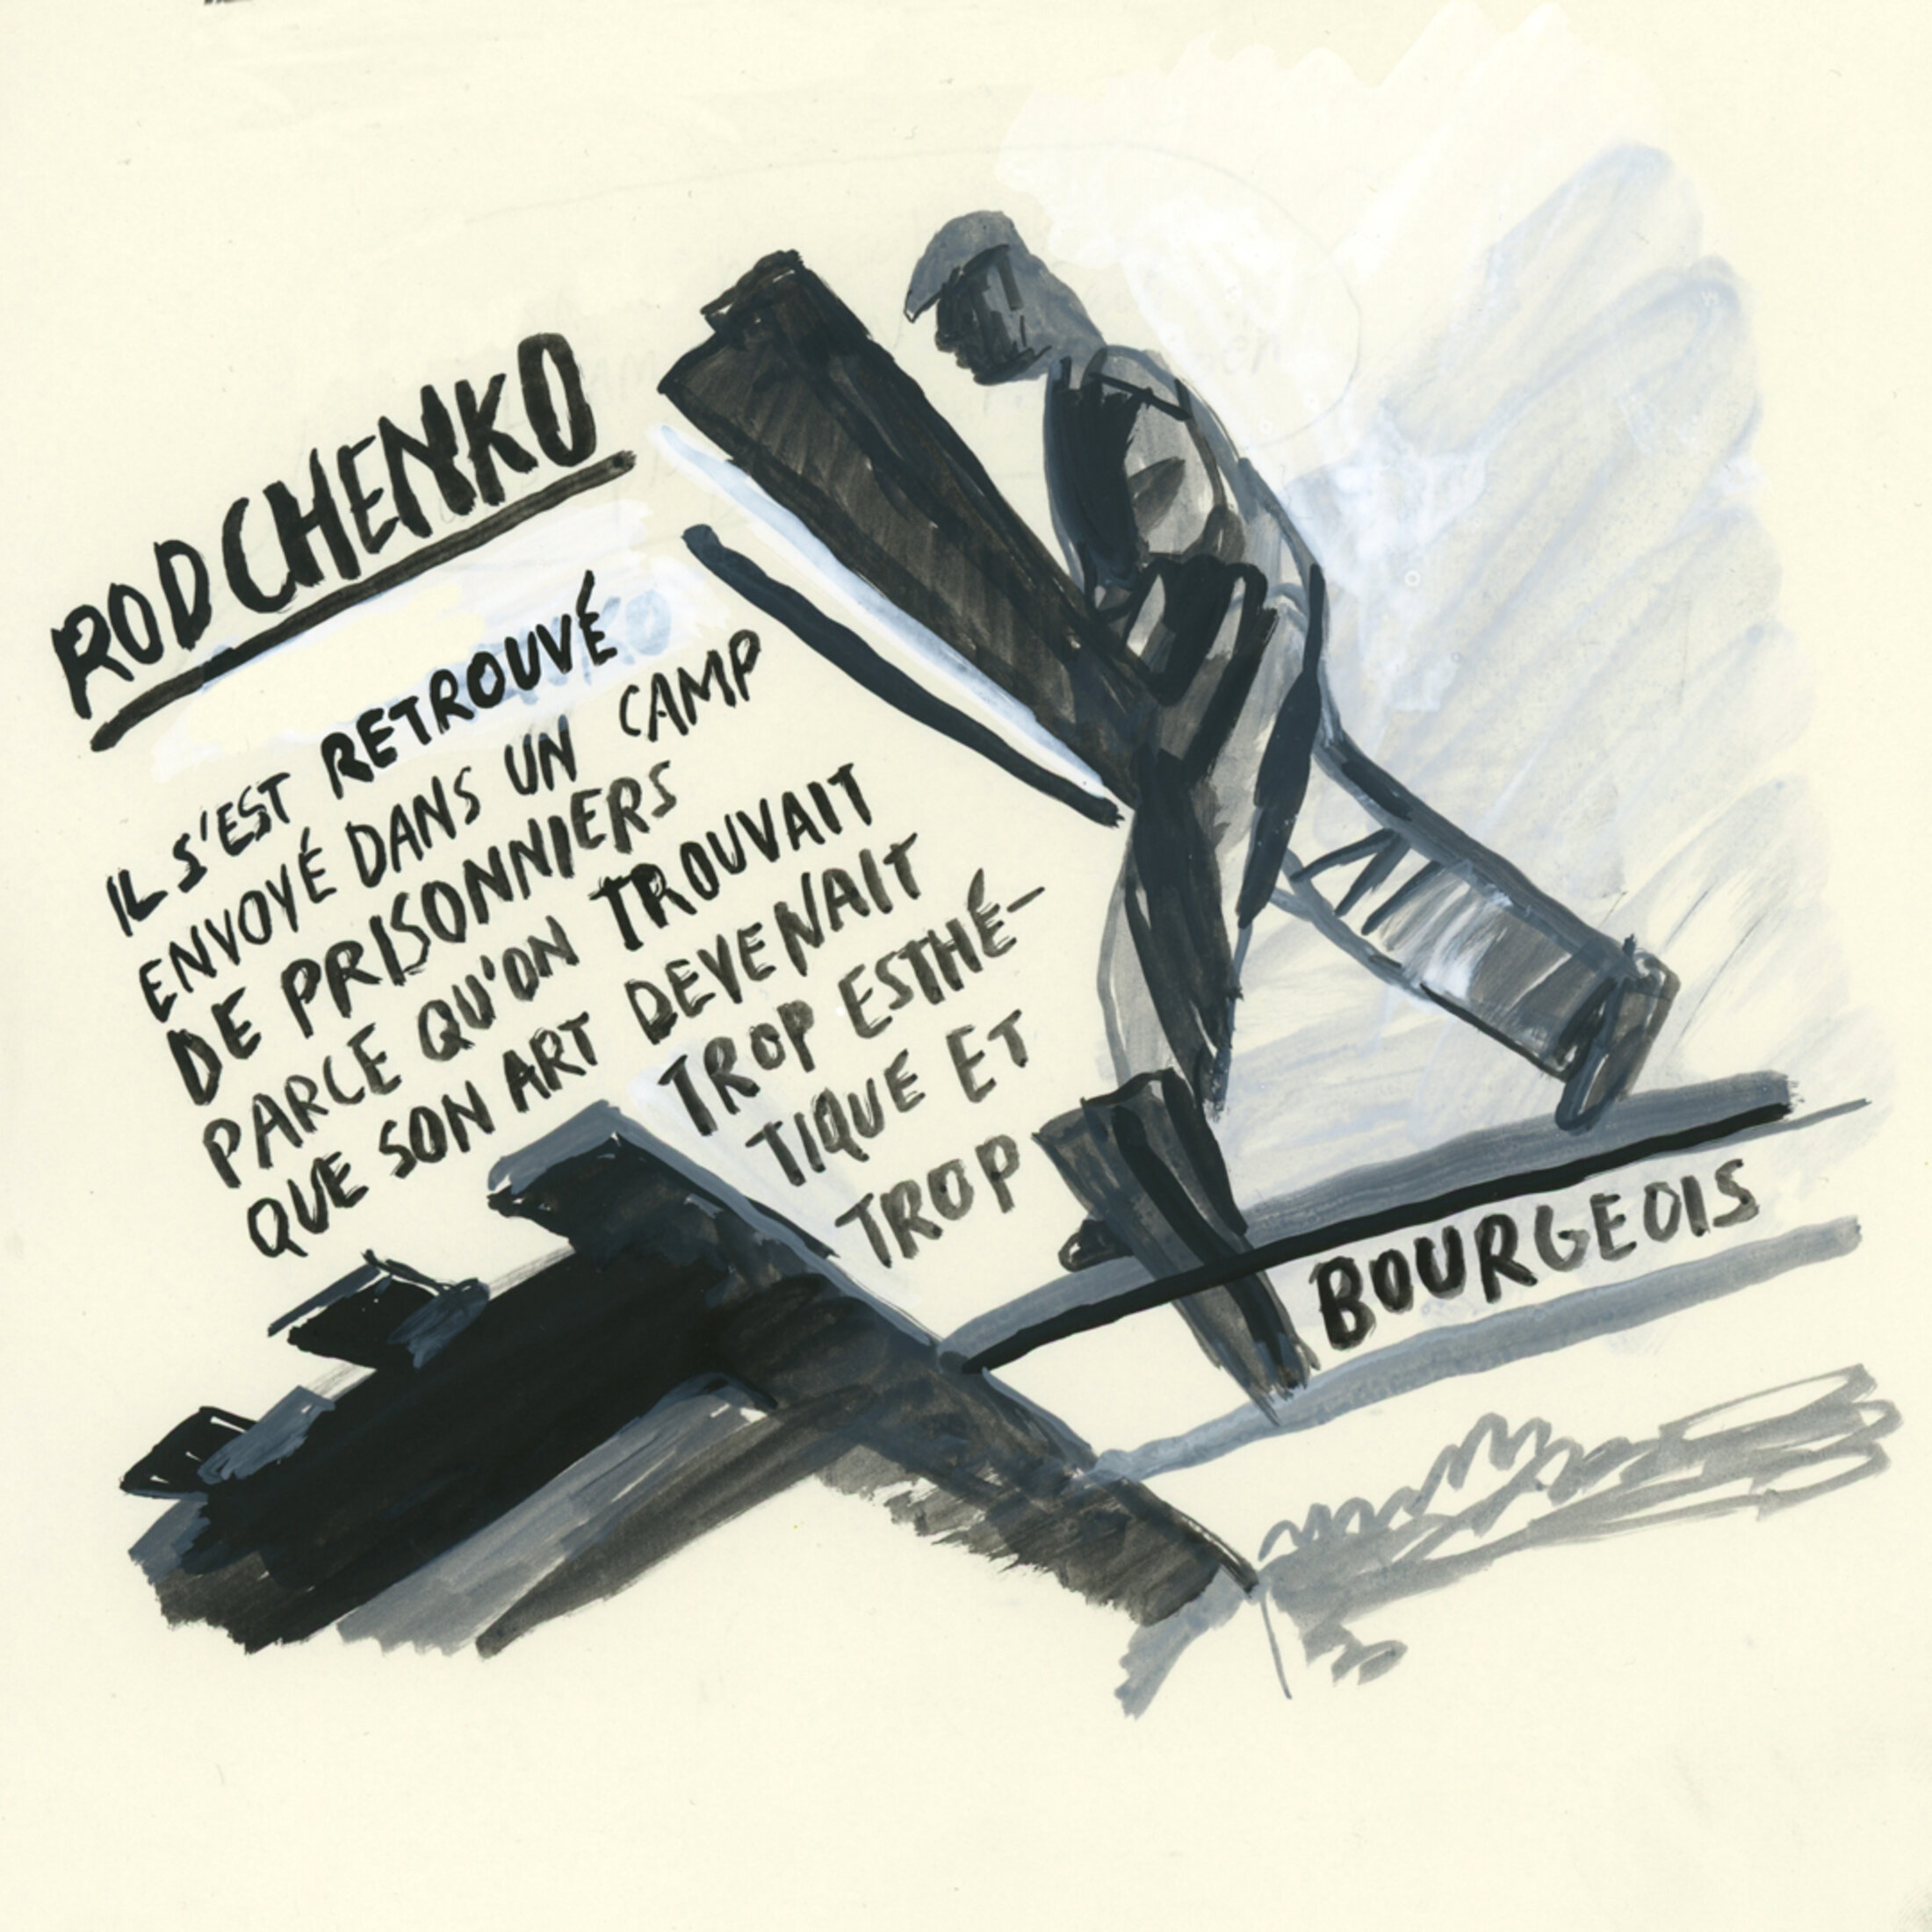 RODCHENKO
IL S'EST RETROUVÉ
ENVOYÉ DANS UN CAMP
DE PRISONNIERS
PARCE QU'ON TROUVAIT
QUE SON ART DEVENAIT
TROP ESTHÉ-
TIQUE ET
TROP
BOURGEOIS